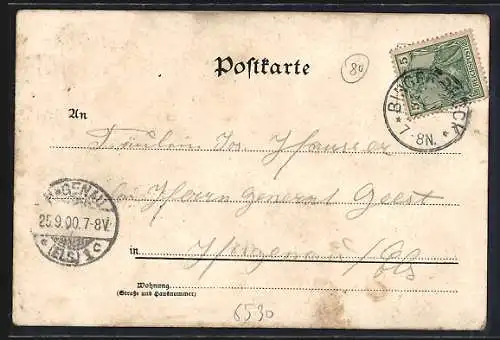 Postkarte
80
5
BINGERBRÜCK
8N.
An
Fräulein Jos Hausser
bei Herrn General Geest
HAGENAU
25.9.00.7-8V.
(ELS) 1 c
in Hagenau/Els
Wohnung
(Straße und Hausnummer)
6530